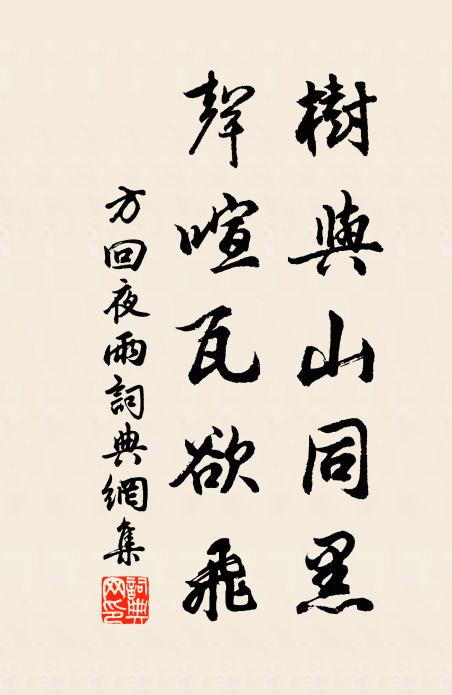 樹與山同黑
聲喧瓦欲飛
方回夜雨詞典網集
詞典
网印